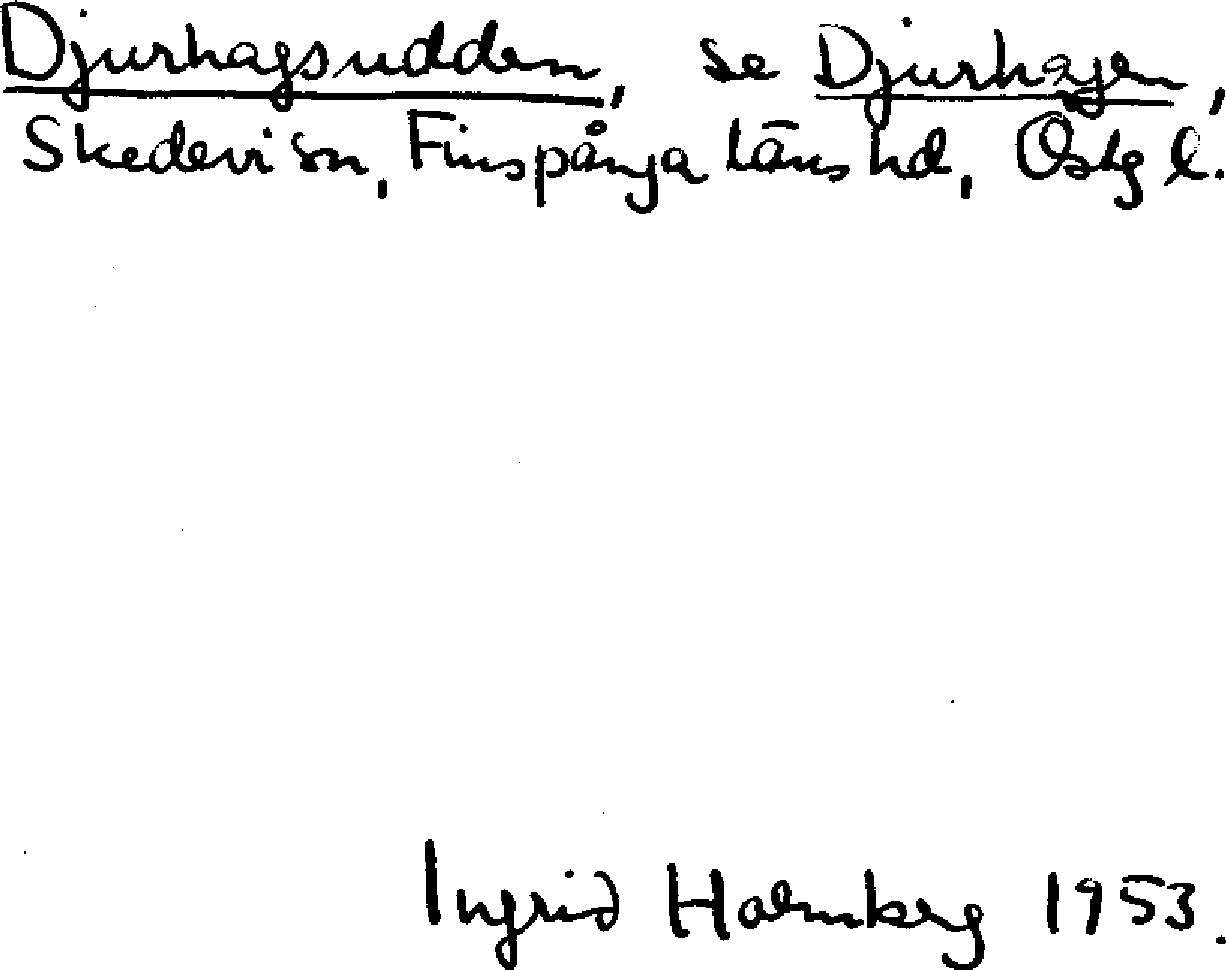 Djurhagsudden, se Djurhagen,
Skedevi sn, Finspånga läns hd, Östg l.
Ingrid Holmberg 1953.